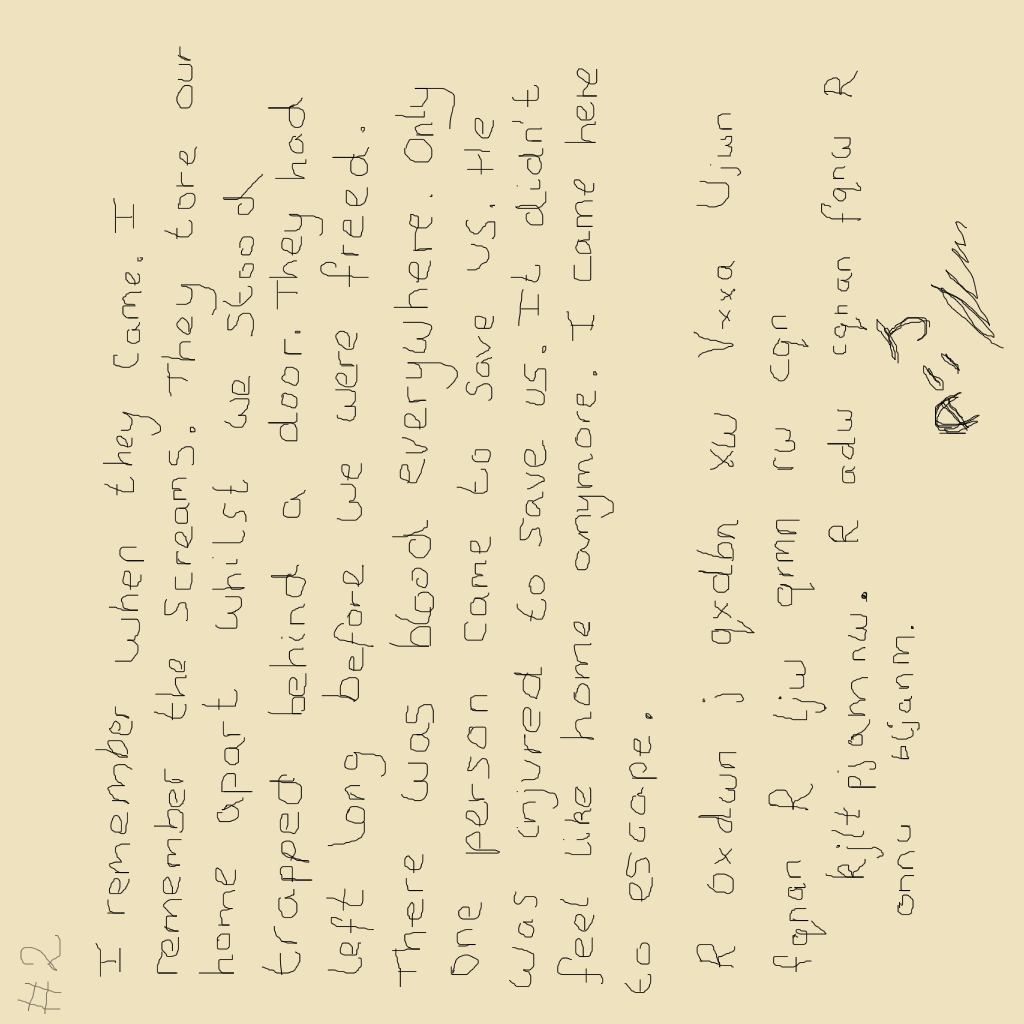 #2
I remember when they came. I
remember the screams. They tore our
home apart whilst we stood
trapped behind a door. They had
left long before we were freed.
There was blood everywhere. Only
One person came to save us. He
was injured to save us. It didn't
feel like home anymore. I came here
to escape.
R oxdwn j qxdbn xw Vxxa Ujwn
fqnan R ljw qrmn rw cqn
kjltpjamnw. R adw cqnan fqnw R
onnu bljanm.